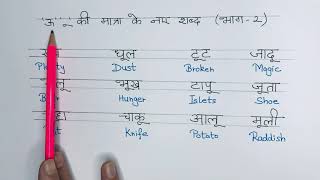 ऊ ू की मात्रा के नए शब्द (भाग-2)
धूल टूट जादू
Dust Broken Magic
भूख टापू जूता
Hunger Islets Shoe
चाकू आलू मूली
Knife Potato Raddish